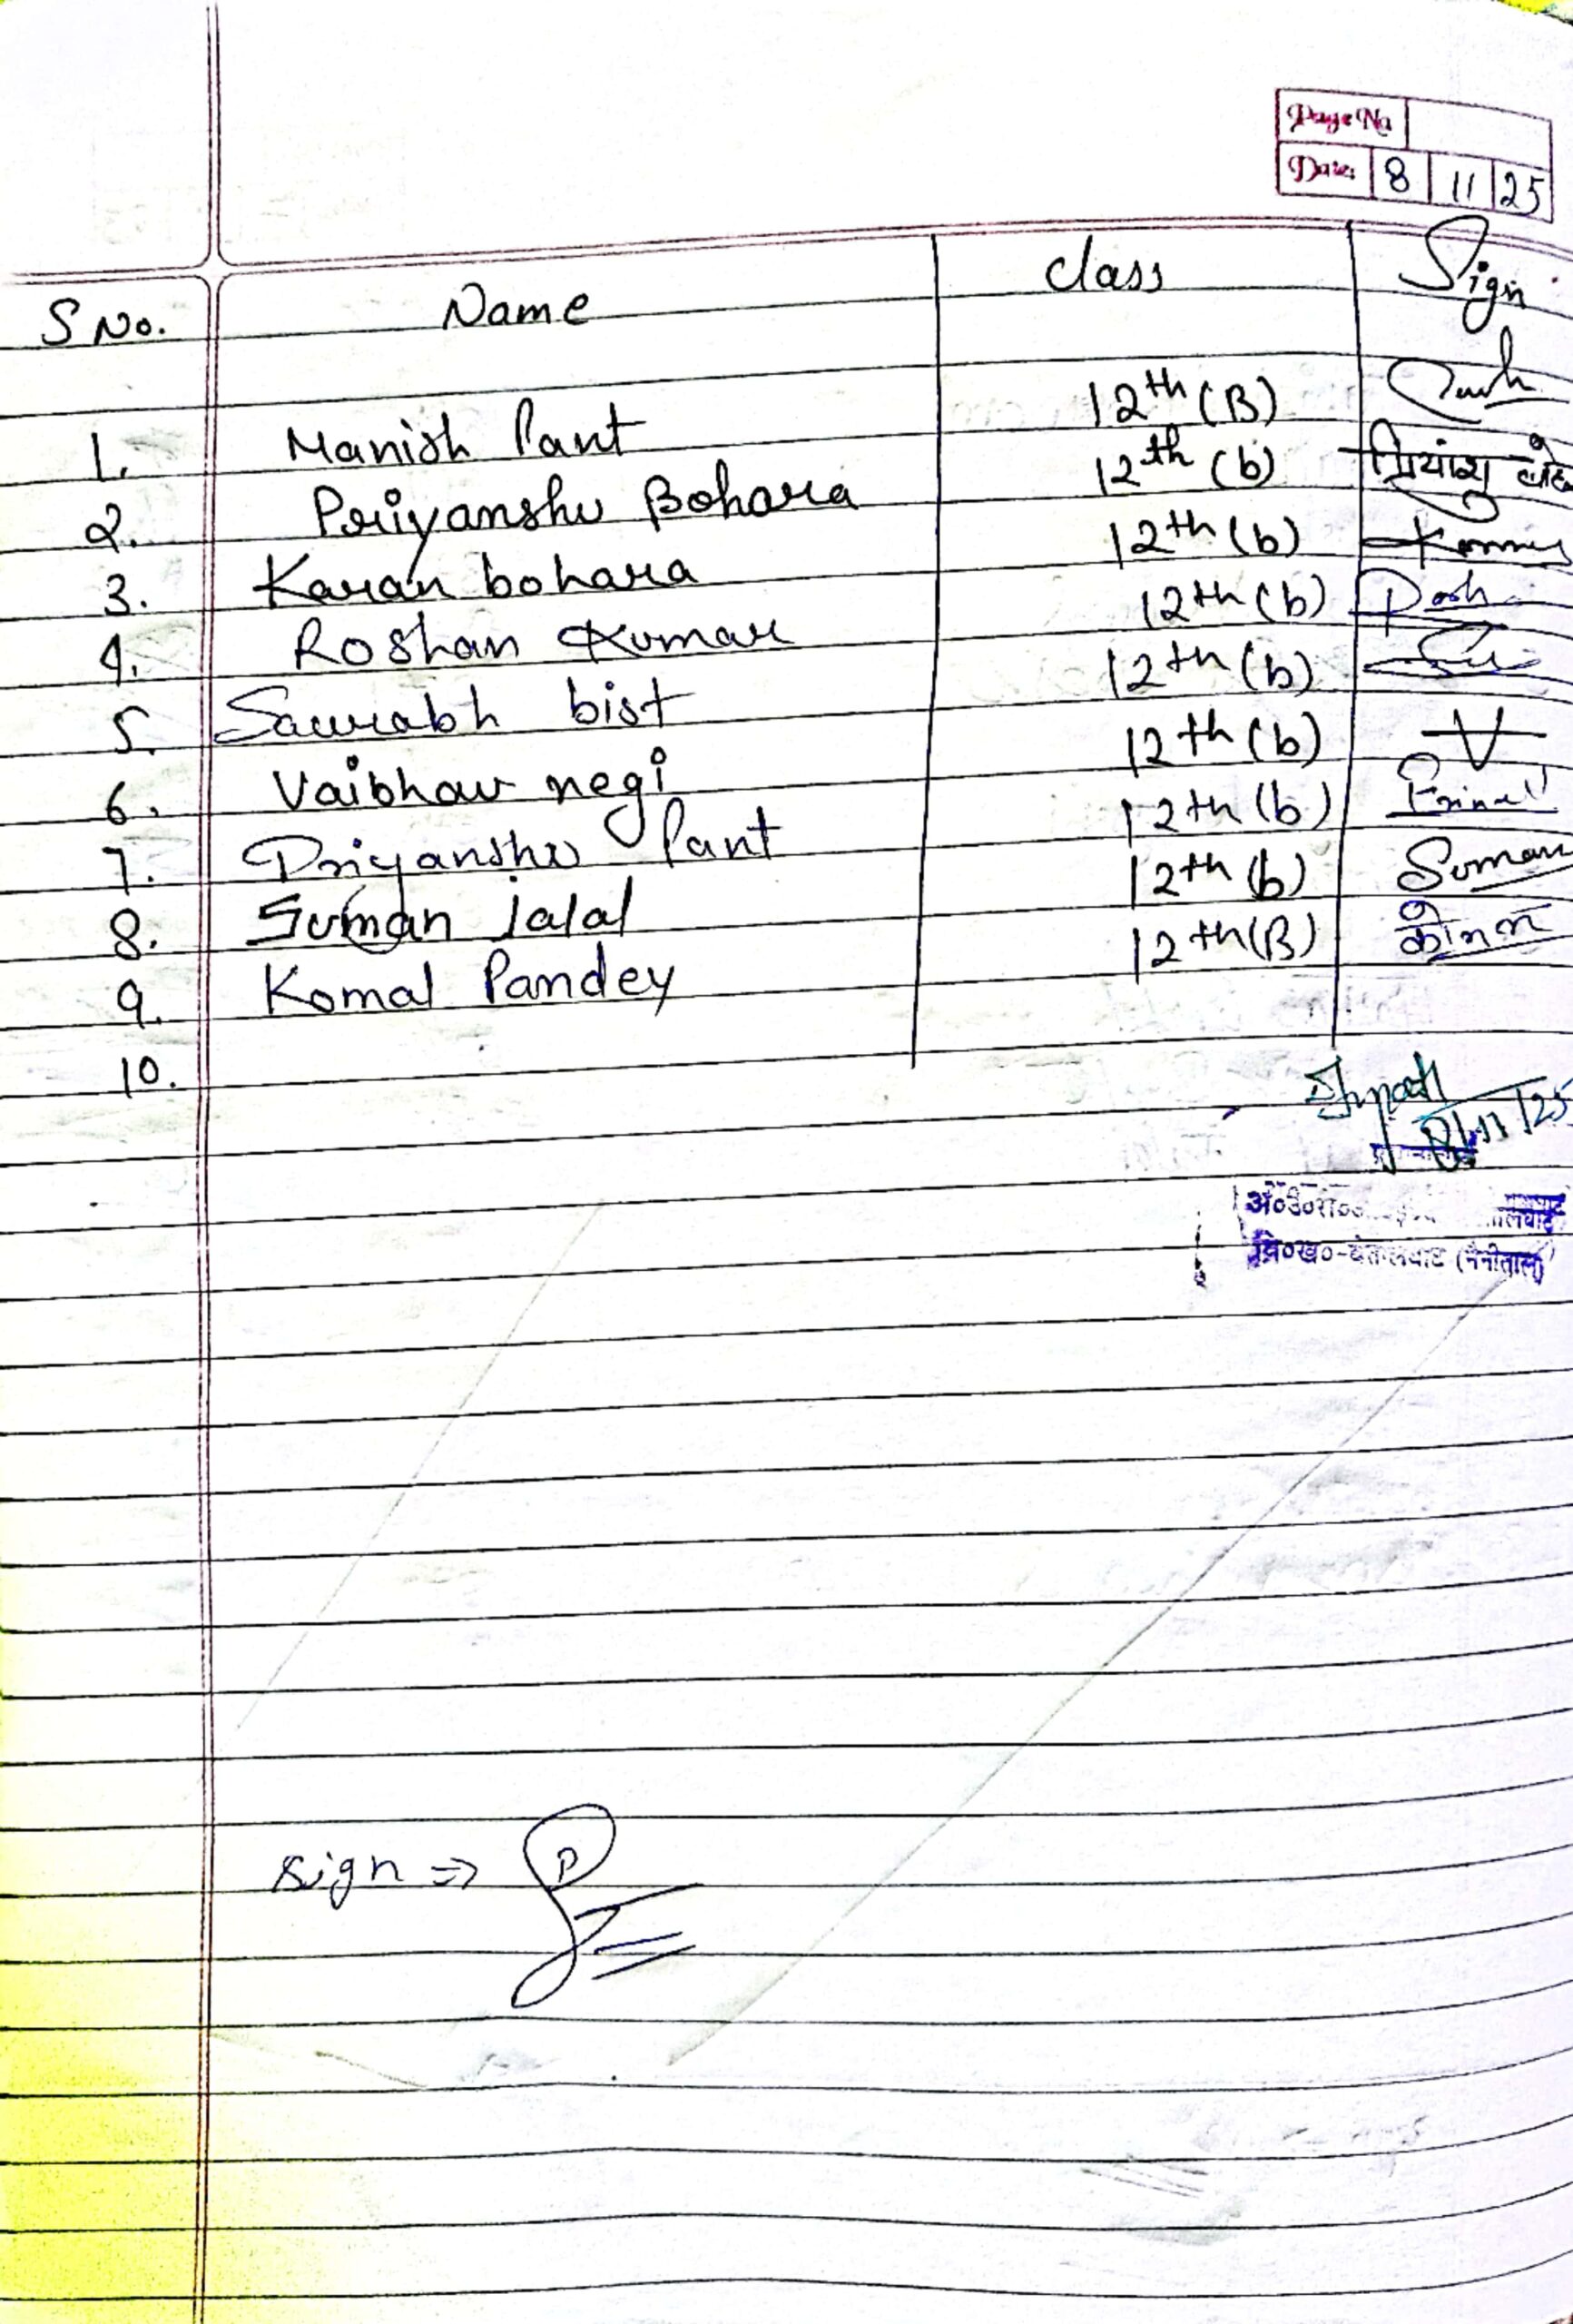 Page No
Date: 8 11 25
S No. Name class Sign
1. Manish Pant 12th (B)
2. Priyanshu Bohara 12th (b) प्रियांशु
3. Karan bohara 12th (b)
4. Roshan Kumar 12th (b) Rosh
5. Saurabh bist 12th (b)
6. Vaibhav negi 12th (b) V
7. Priyanshu Pant 12th (b)
8. Suman jalal 12th (b) Suman
9. Komal Pandey 12th (B)
10.
8/11/25
वि०ख०-बेतालघाट (नैनीताल)
sign ⇒ P